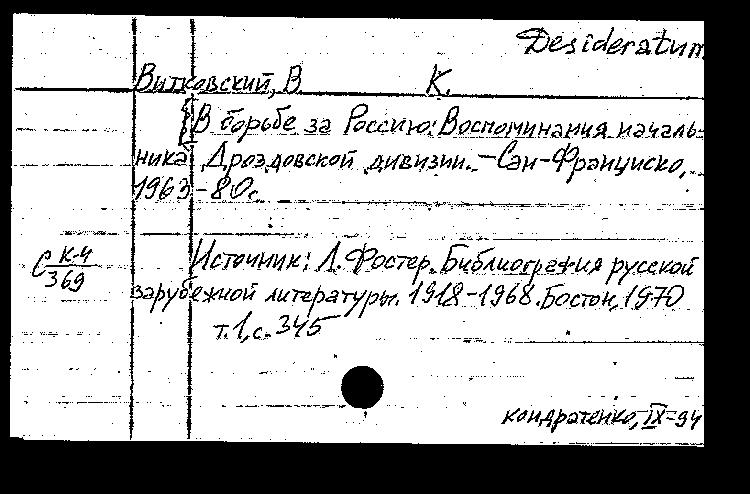 Desideratum
Витковский, В. К.
В борьбе за Россию: Воспоминания началь-
ника Дроздовской дивизии. - Сан-Франциско,
1963. - 80с.
С К-4
369
Источник: Л. Фостер. Библиография русской
зарубежной литературы. 1918-1968. Бостон, 1970
т. 1, с. 345
Кондратенко, IX-94